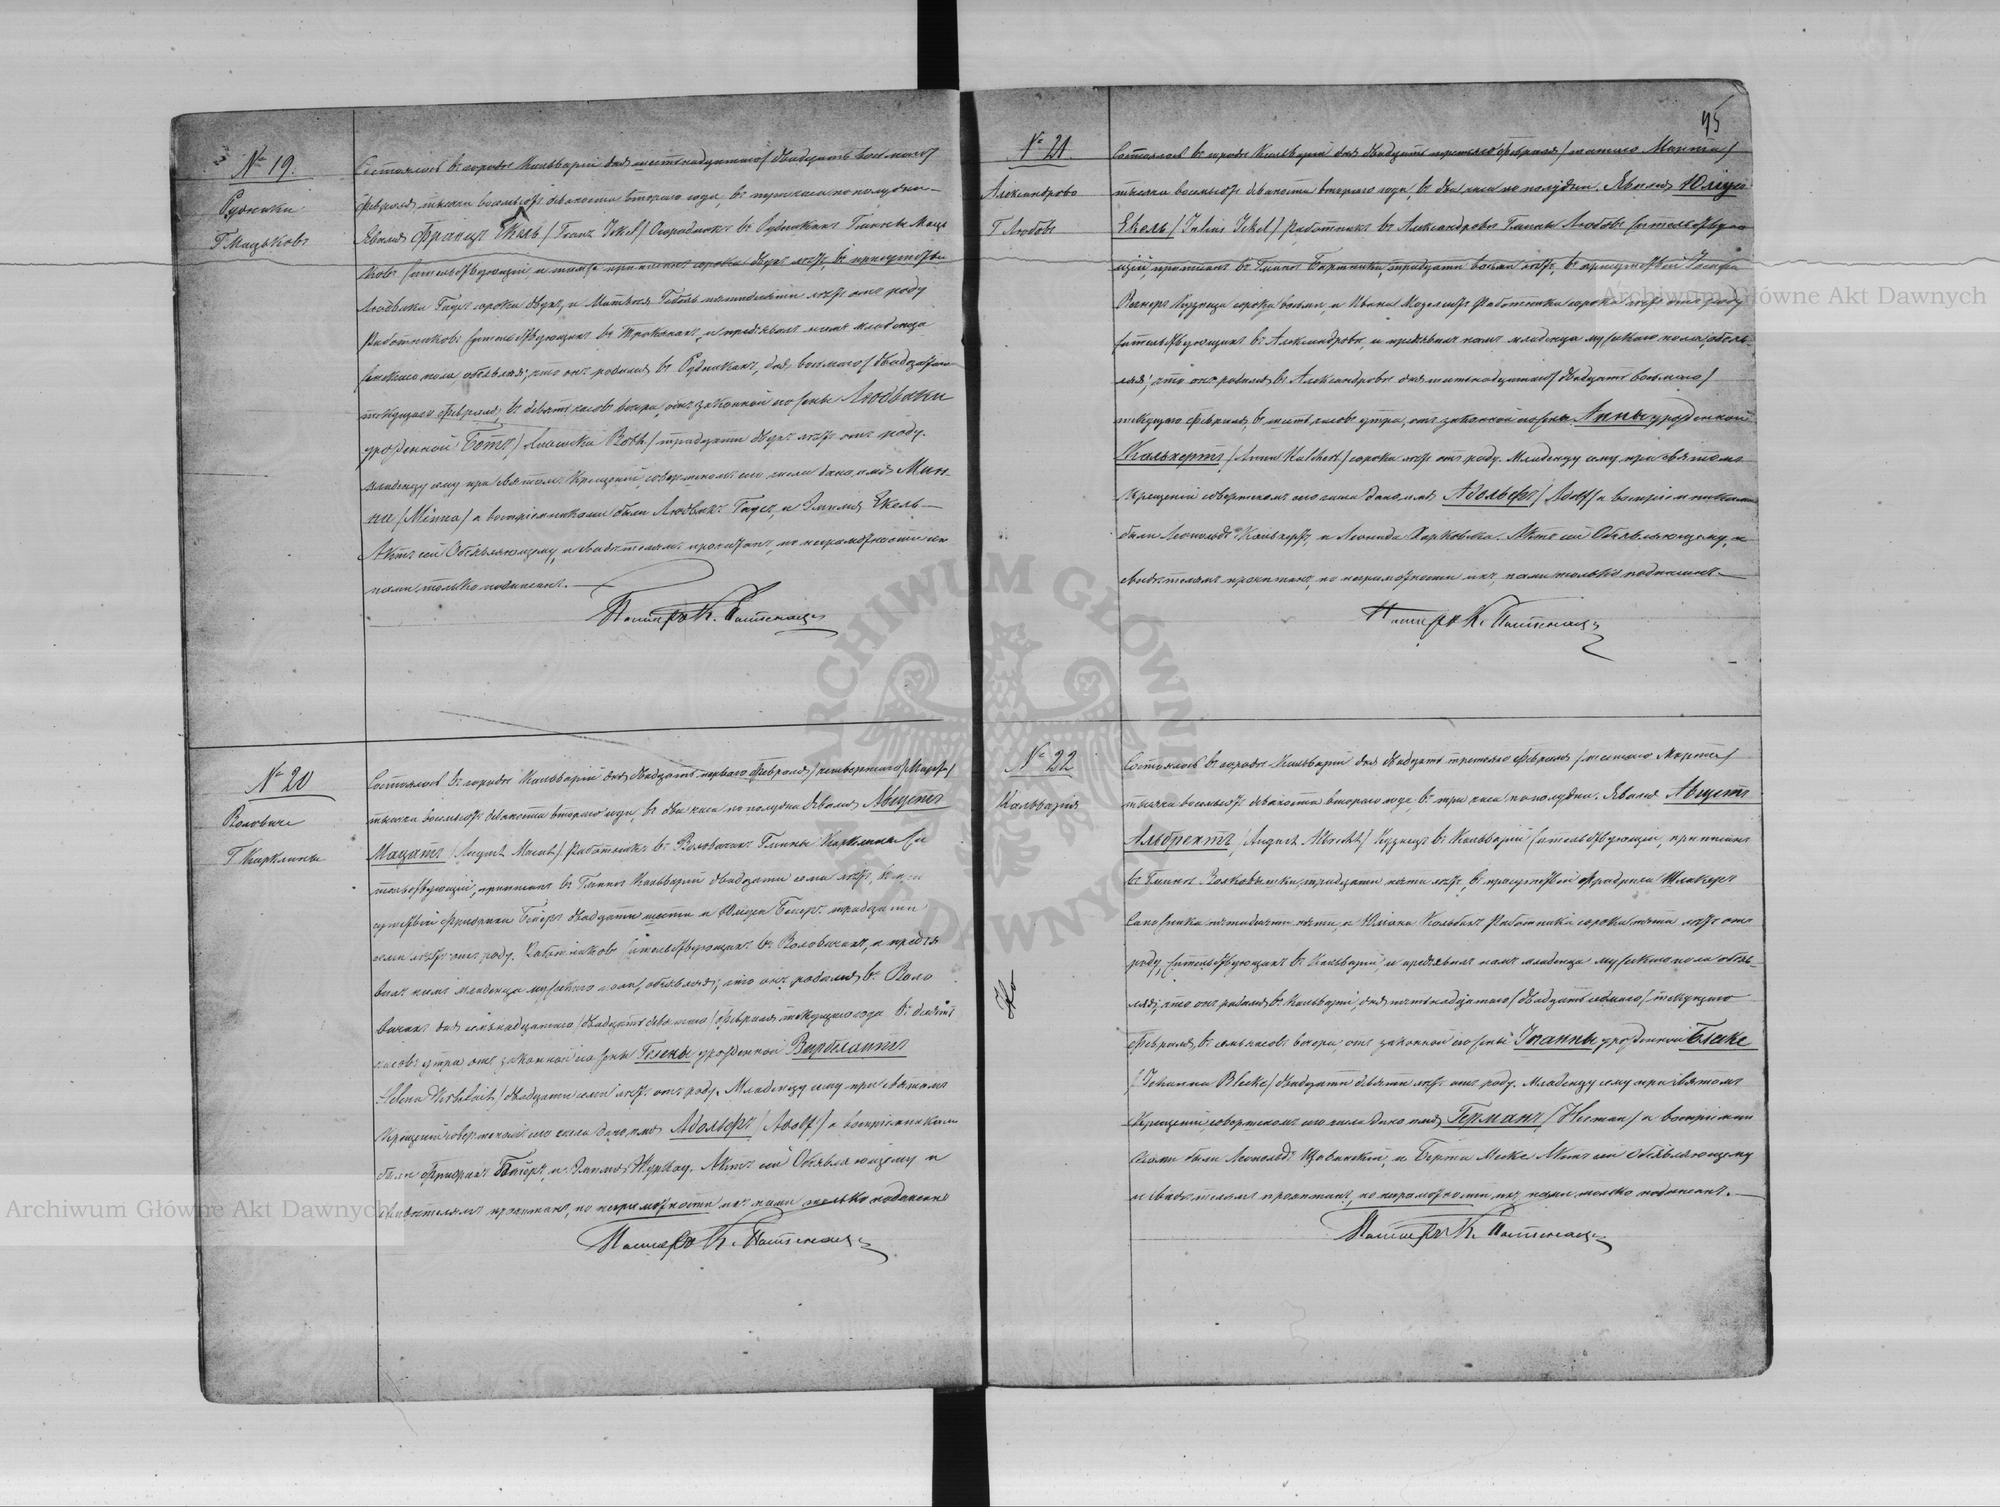 № 19.
Рудники
Г Мацьковъ
Состоялось въ городѣ Кальваріи дня шестнадцатаго / двадцать восьмаго /
Февраля тысяча восемьсотъ девяноста втораго года, въ три часа по полудни –
Явился Францъ Екель / Franz Jekel / Огородникъ въ Рудникахъ Гмины Маць
ковъ жительствующій и тамже приписанъ сорока двухъ лѣтъ, въ присутствіи
Людвика сорока двухъ, и лѣтъ отъ роду
Работниковъ жительствующихъ въ и предъявилъ намъ младенца
женскаго пола, объявляя; что онъ родился въ Рудникахъ, дня восьмаго / двадцатаго
текущаго Февраля, въ девять часовъ вечера, отъ законной его жены Людвики
урожденной Ботъ / Roth / тридцати двухъ лѣтъ отъ роду.
младенцу сему при святомъ Крещеніи, совершенномъ сего числа дано имя Мин
не / Minna / а воспріемниками были Людвикъ и Эмилія Екель –
Актъ сей Объявляющему, и свидѣтелямъ прочитанъ, по неграмотности ихъ
нами только подписанъ. –
Пасторъ К.
№ 20
Воловиче
Г Кирклины
Состоялось въ городѣ Кальваріи дня двадцать перваго Февраля / четвертаго Марта /
тысяча восемьсотъ девяноста втораго года, въ два часа по полудни Явился Августъ
Мацатъ / August Macat / Работникъ въ Воловичахъ Гмины Кирклины жи
тельствующій, приписанъ въ Гминѣ Кальварій двадцати семи лѣтъ, въ при
сутствіи Фридриха двадцати шести и тридцати
семи лѣтъ отъ роду. Работниковъ жительствующихъ въ Воловичахъ, и предъя
вилъ намъ младенца мужескаго пола, объявляя; что онъ родился въ Воло
вичахъ дня семнадцатаго / двадцать девятаго / Февраля текущаго года въ девять
часовъ утра отъ законной его жены Гелены урожденной Вирбелаитъ
/ Helena Wirbelait / двадцати семи лѣтъ отъ роду. Младенцу сему при святомъ
Крещеніи совершенномъ сего числа дано имя Адольфъ / Adolf / а воспріемниками
были Фридрихъ и Эмилія Актъ сей Объявляющему и
свидѣтелямъ прочитанъ, по неграмотности ихъ нами только подписанъ
Пасторъ К.
95
№ 21
Александрово
Г Любовъ
Состоялось въ городѣ Кальваріи дня двадцать третьяго Февраля / шестаго Марта /
тысяча восемьсотъ девяноста втораго года, въ два часа по полудни. Явился Юліусъ
Екель / Julius Jekel / Работникъ въ Александровѣ Гмины Любовъ жительствую
щій, приписанъ въ Гминѣ тридцати восьми лѣтъ, въ присутствіи
Кузнеца сорока восьми, и Ивана Работника сорока лѣтъ отъ роду
жительствующихъ въ Александровѣ, и предъявилъ намъ младенца мужескаго пола, объяв-
ляя; что онъ родился въ Александровѣ дня шестнадцатаго / двадцать восьмаго /
текущаго Февраля, въ шесть часовъ утра, отъ законной его жены Анны урожденной
Кальхертъ / Anna Kalchert / сорока лѣтъ отъ роду. Младенцу сему при святомъ
Крещеніи совершенномъ сего числа дано имя Адольфъ / Adolf / а воспріемниками
были Леопольдъ Кальхертъ, и Леонида Актъ сей Объявляющему, и
свидѣтелямъ прочитанъ, по неграмотности ихъ, нами только подписанъ. –
Пасторъ К.
№ 22
Кальварія
Состоялось въ городѣ Кальваріи дня двадцать третьяго Февраля / шестаго Марта /
тысяча восемьсотъ девяноста втораго года, въ три часа по полудни. Явился Августъ
Альбрехтъ, / August Albrecht / Кузнецъ въ Кальваріи жительствующій, приписанъ
въ Гминѣ Волковышки, тридцати пяти лѣтъ, въ присутствіи Фридриха
Сапожника пятидесяти пяти, и Работника сорока пяти лѣтъ отъ
роду, жительствующихъ въ Кальваріи, и предъявилъ намъ младенца мужескаго пола объяв-
ляя; что онъ родился въ Кальваріи, дня пятнадцатаго / двадцать седьмаго / текущаго
Февраля, въ семь часовъ вечера, отъ законной его жены Іоанны урожденной Блеке
/ Johanna Blecke / двадцати девяти лѣтъ отъ роду. Младенцу сему при святомъ
Крещеніи, совершенномъ сего числа дано имя Германъ, / Herman / а воспріемни
ками были Леопольдъ и Берта Актъ сей Объявляющему
и свидѣтелямъ прочитанъ, по неграмотности ихъ нами только подписанъ. –
Пасторъ К.
ARCHIWUM GŁÓWNE AKT DAWNYCH
Archiwum Główne Akt Dawnych
Archiwum Główne Akt Dawnych